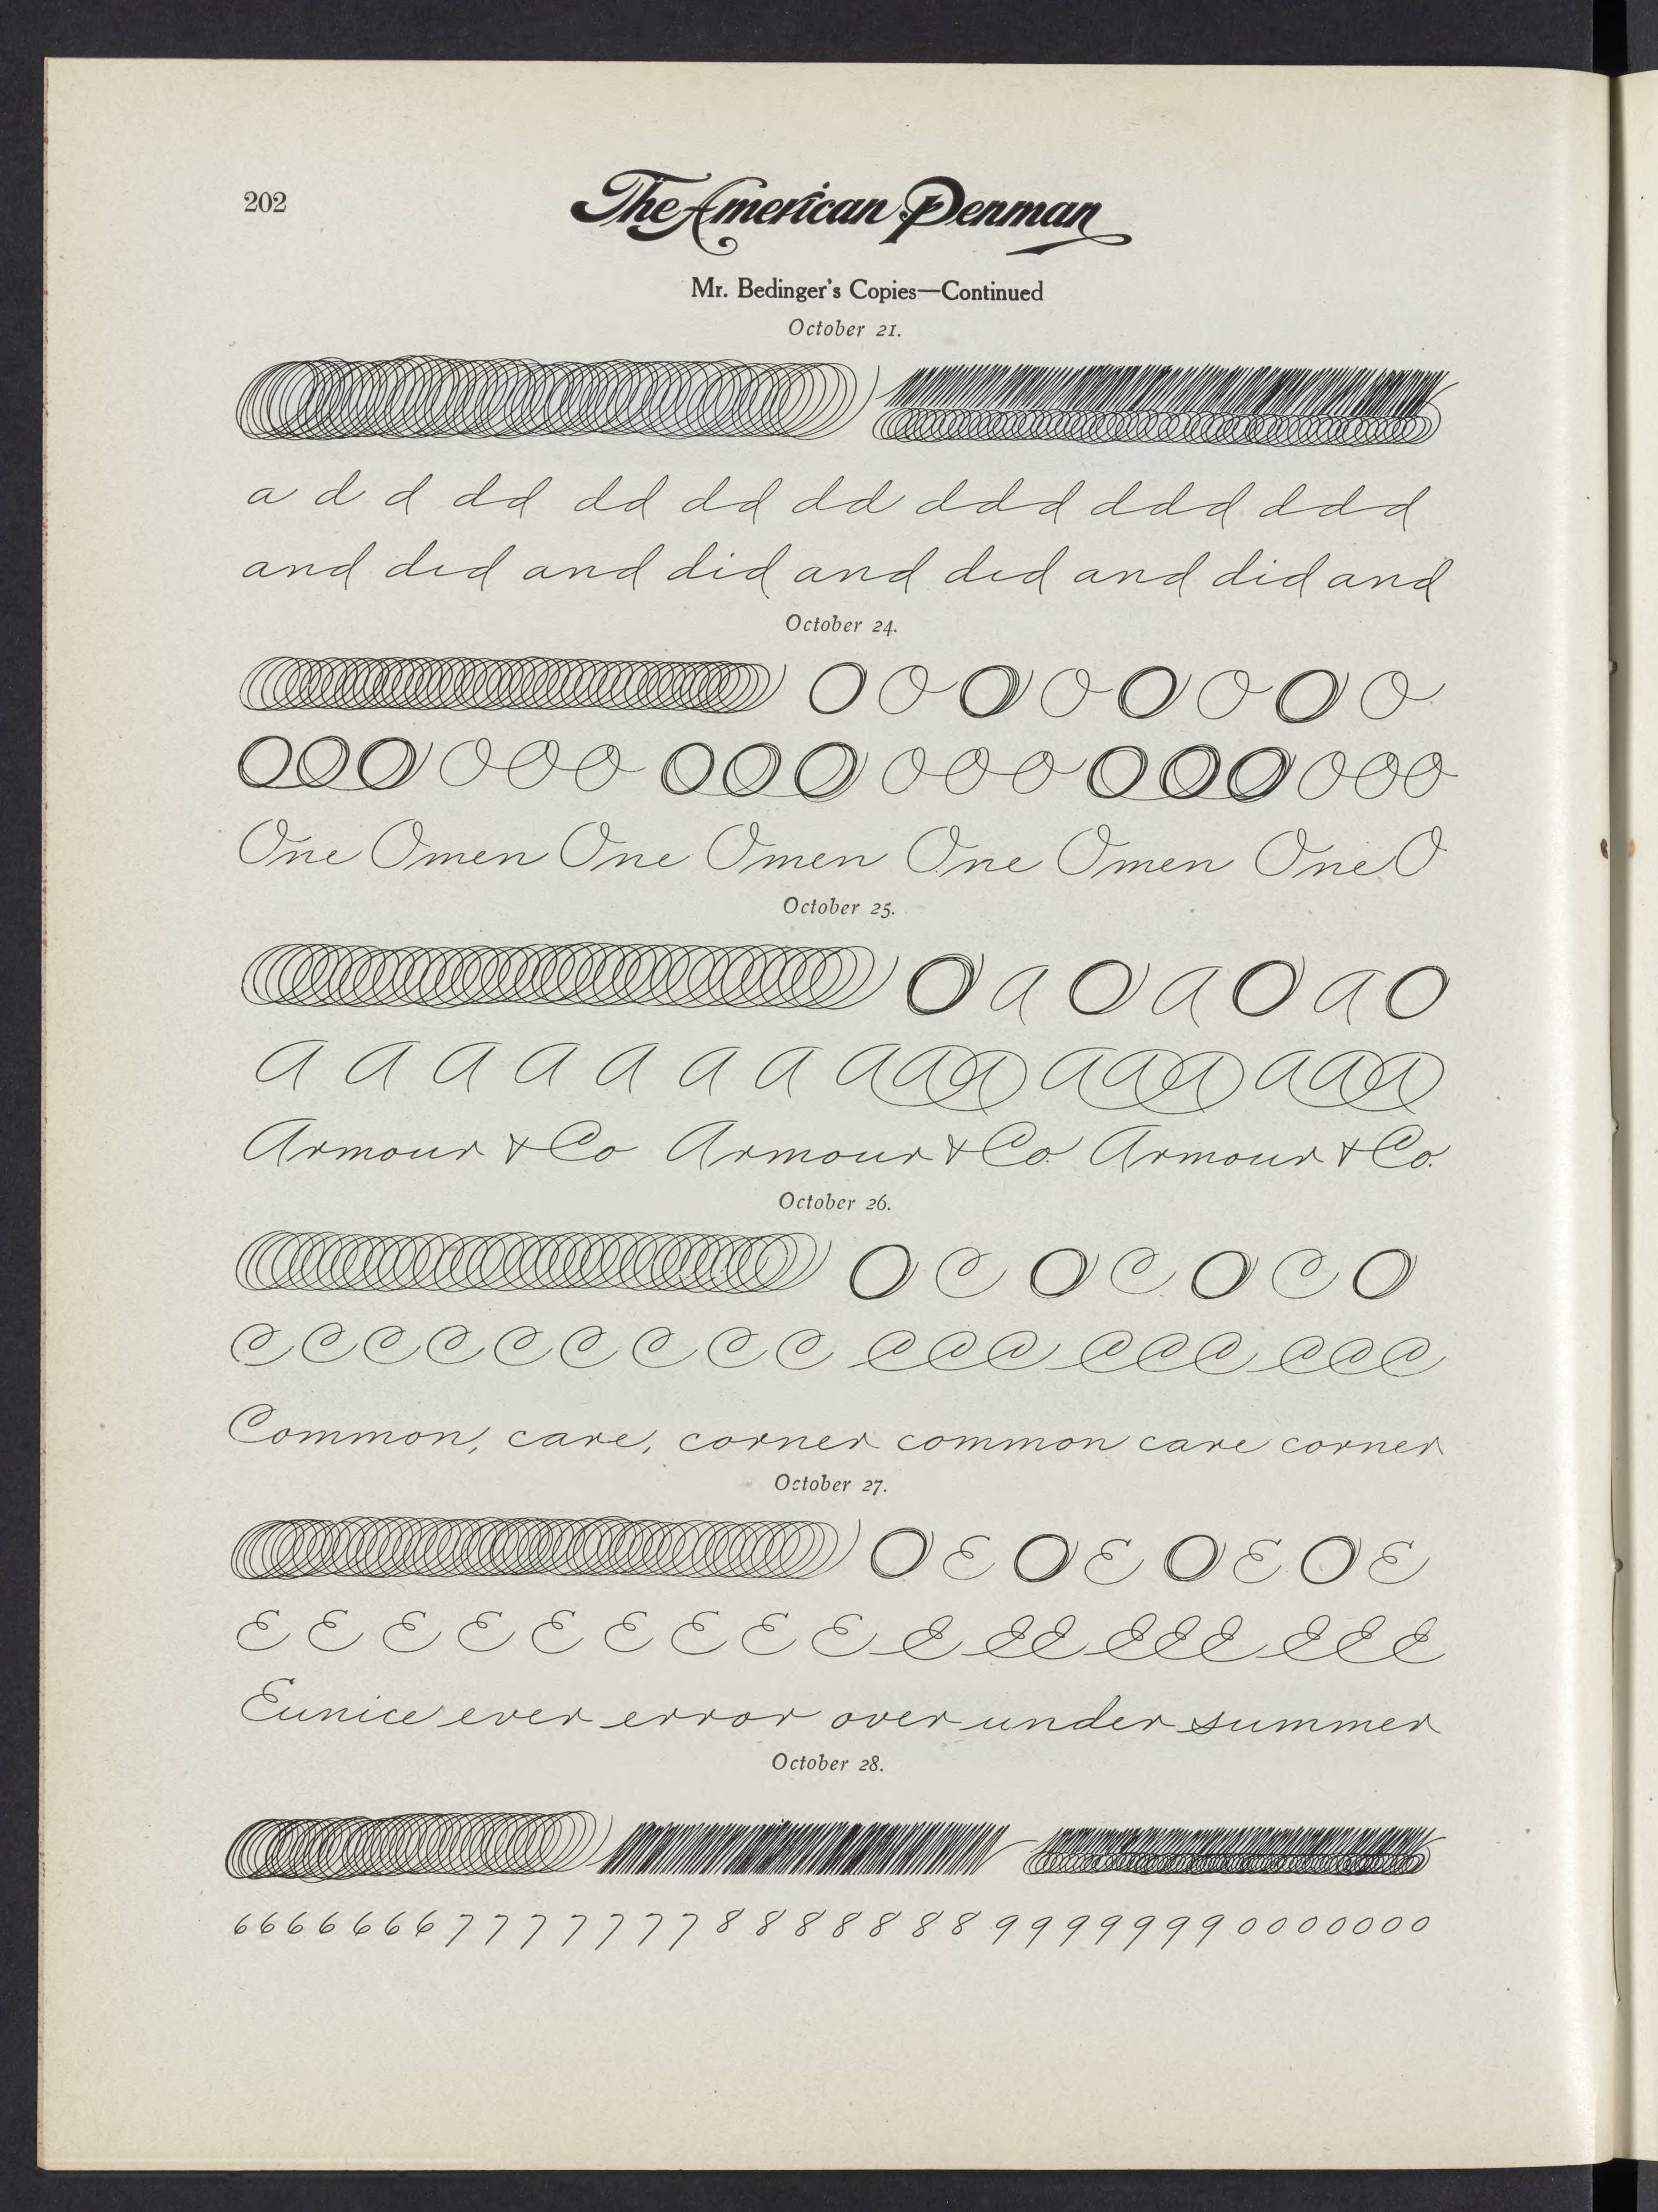 202
The American Penman
Mr. Bedinger's Copies—Continued
October 21.
a d d dd dd dd dd ddd ddd ddd
and did and did and did and did and
October 24.
O O O O O O O O
O O O O O O O O O O O O O O O O O O
One Omen One Omen One Omen One O
October 25.
O A O A O A O
A A A A A A A AAA AAA AAA
Armour & Co Armour & Co. Armour & Co.
October 26.
O C O C O C O
C C C C C C C C C CCC CCC CCC
Common, care, corner common care corner
October 27.
O E O E O E O E
E E E E E E E E E E EE EEE EEE
Eunice ever error over under summer
October 28.
6 6 6 6 6 6 6 6 7 7 7 7 7 7 7 8 8 8 8 8 8 8 9 9 9 9 9 9 9 0 0 0 0 0 0 0 0